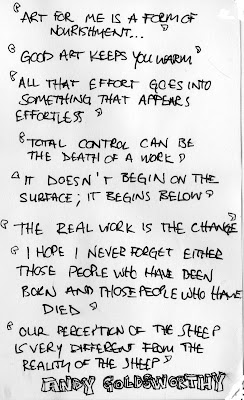 "ART FOR ME IS A FORM OF
NOURISHMENT..."
"GOOD ART KEEPS YOU WARM"
"ALL THAT EFFORT GOES INTO
SOMETHING THAT APPEARS
EFFORTLESS"
"TOTAL CONTROL CAN BE
THE DEATH OF A WORK"
"IT DOESN'T BEGIN ON THE
SURFACE; IT BEGINS BELOW"
"THE REAL WORK IS THE CHANGE"
"I HOPE I NEVER FORGET EITHER
THOSE PEOPLE WHO HAVE BEEN
BORN AND THOSE PEOPLE WHO HAVE
DIED"
"OUR PERCEPTION OF THE SHEEP
IS VERY DIFFERENT FROM THE
REALITY OF THE SHEEP"
ANDY GOLDSWORTHY